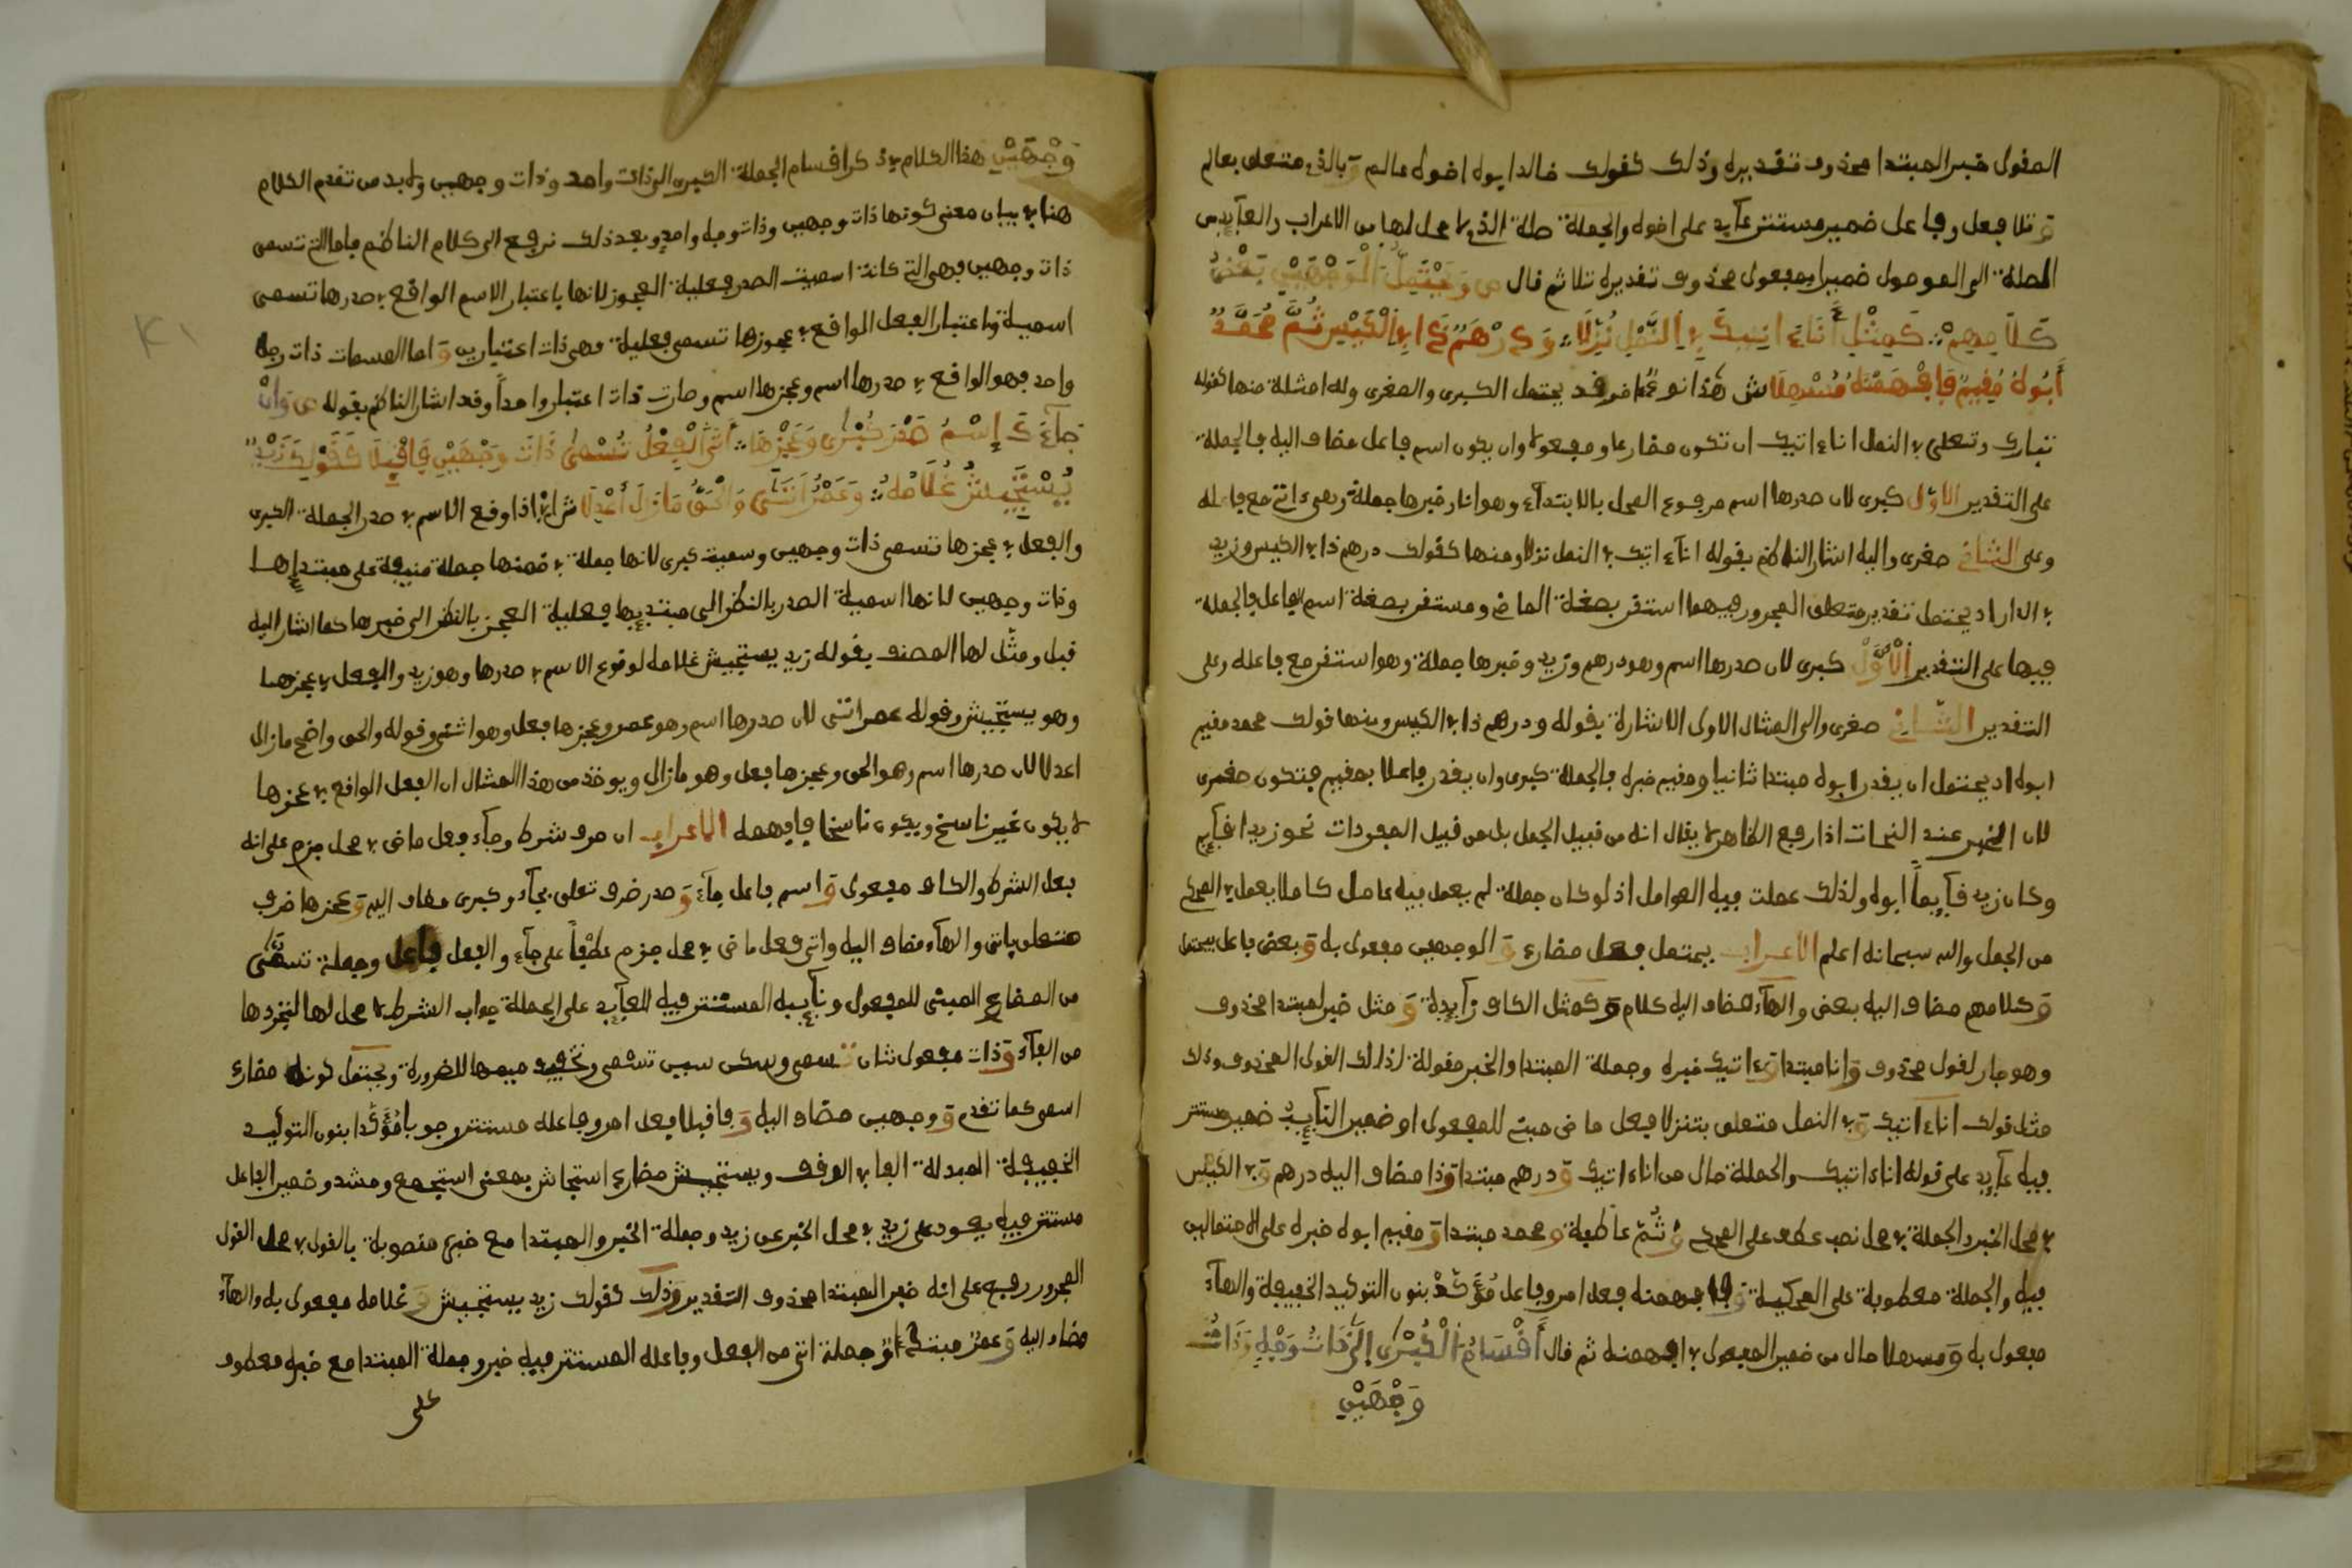 المقول خبر المبتدا محذوف تقديره وذلك كقولك خالد ابوه اخوه عالم وبالذي متعلق بعالم
وتلا فعل وفاعل ضمير مستتر عآيد على اخوه والجملة صلة الذي لا محل لها من الاعراب والعآيد من
الصلة الى الموصول ضمير بمفعول محذوف تقديره تلاه ثم قال ص وَيَحْتَمِلُ الْوَجْهَيْنِ بَعْضُ
كَلَامِهِمْ كَمِثْلِ أَنَا ءَاتِيكَ فِي النَّمْلِ نُزِّلَا وَدِرْهَمُ ذَا فِي الْكِيسِ ثُمَّ مُحَمَّدٌ
أَبُوهُ مُقِيمٌ فَافْهَمَنْهُ مُسْهِلَا ش هذا نوع اخر قد يحتمل الكبرى والصغرى وله امثلة منها كقوله
تبارك وتعلى في النمل انا ءاتيك ان تكون مضارعا ومفعولا وان يكون اسم فاعل مضاف اليه فالجملة
على التقدير الاول كبرى لان صدرها اسم مرفوع المحل بالابتدآء وهو انا وخبرها جملة وهي ءاتي مع فاعله
وعلى الثاني صغرى واليه اشار الناظم بقوله انا ءاتيك في النمل نزلا ومنها كقولك درهم ذا في الكيس وزيد
في الدار اذ يحتمل تقدير متعلق المجرور فيهما استقر بصغة الماضي ومستقر بصغة اسم الفاعل فالجملة
فيها على التقدير الْأَوَّلْ كبرى لان صدرها اسم وهو درهم وزيد وخبرها جملة وهو استقر مع فاعله وعلى
التقدير الثاني صغرى والى المثال الاول الاشارة بقوله ودرهم ذا في الكيس ومنها قولك محمد مقيم
ابوه اذ يحتمل ان يقدر ابوه مبتدا ثانيا ومقيم خبره فالجملة كبرى وان يقدر فاعلا بمقيم فتكون صغرى
لان الخبر عند النحات اذا رفع الظاهر لا يقال انه من قبيل الجمل بل من قبيل المفردات نحو زيد اقآيم
وكان زيد قآيماً ابوه ولذلك عملت فيه العوامل اذ لو كان جملة لم يعمل فيه عامل كما لا يعمل في المحكي
من الجمل والله سبحانه اعلم الاعراب يحتمل فعل مضارع والوجهين مفعول به وبعض فاعل يحتمل
وكلامهم مضاف اليه بعض والهآء مضاف اليه كلام وكمثل الكاف زآيدة ومثل خبر لمبتدا محذوف
وهو جار لقول محذوف وانا مبتدا وءاتيك خبره وجملة المبتدا والخبر مقولة لذلك القول المحذوف وذلك
مثل قولك انا ءاتيك وفي النمل متعلق بتنزلا فعل ماض مبني للمفعول او ضمير النآيب ضمير مستتر
فيه عآيد على قوله انا ءاتيك والجملة حال من انا ءاتيك ودرهم مبتدا وذا مضاف اليه درهم وفي الكيس
في محل الخبر والجملة في محل نصب عطف على المحكي وَثُمَّ عاطفة ومحمد مبتدا ومقيم ابوه خبره على الاحتمالين
فيه والجملة معطوفة على المحكية وفافهمنه فعل امر وفاعل مؤكد بنون التوكيد الخفيفة والهآء
مفعول به ومسهلا حال من ضمير المفعول في افهمنه ثم قال أَقْسَامُ الْكُبْرَى إِلَى ذَاتِ وَجْهٍ وَذَاتُ
وَجْهَيْنِ
وَجْهَيْنِ هذا الكلام في ذكر اقسام الجملة الكبرى الى ذات واحد وذات وجهين ولا بد من تقدم الكلام
هنا في بيان معنى كونها ذات وجهين وذات وجه واحد وبعد ذلك نرجع الى كلام الناظم فاما التي تسمى
ذات وجهين فهي التي كانة اسمية الصدر فعلية العجوز لانها باعتبار الاسم الواقع في صدرها تسمى
اسمية وباعتبار الفعل الواقع في عجوزها تسمى فعلية فهي ذات اعتبارين واما المسمات ذات وجه
واحد فهو الواقع في صدرها اسم وعجزها اسم وصارت ذات اعتبار واحداً وقد اشار الناظم بقوله ص وَانْ
جَآءَكَ إِسْمُ صَدْرَ كُبْرَى وَعَجْزِهَا أَتَى الْفِعْلُ تُسْمَى ذَاتَ وَجْهَيْنِ فَاقْبِلَا كَقَوْلِكَ زَيْدٌ
يُسْتَجِيشُ غُلَامُهُ وَعَمْرٌ انْثَنَى وَالْحَقُّ مَازَلَ أَعْدِلَا ش اي اذا وقع الاسم في صدر الجملة الكبرى
والفعل في عجزها تسمى ذات وجهين وسميت كبرى لانها جملة في ضمنها جملة منبية على مبتدإها
وذات وجهين لانها اسمية الصدر بالنظر الى مبتديها فعلية العجز بالنظر الى خبرها كما اشار اليه
قبل ومثّل لها المصنف بقوله زيد يستجيش غلامه لوقوع الاسم في صدرها وهو زيد والفعل في عجزها
وهو يستجيش وقوله عمر انثنى لان صدرها اسم وهو عمر وعجزها فعل وهو انثنى وقوله والحق واضح مازال
اعدلا لان صدرها اسم وهو الحق وعجزها فعل وهو مازال ويوخذ من هذا المثال ان الفعل الواقع في عجزها
لا يكون غير ناسخ ويكون ناسخا فافهمه الاعراب ان حرف شرط وجآء فعل ماض في محل جزم على انه
فعل الشرط والكاف مفعول واسم فاعل جآء وصدر ضرف تعلق بجآء وكبرى مضاف اليه وعجزها ضرف
متعلق باتى والهآء مضاف اليه واتى فعل ماض في محل جزم عطفاً على جآء والفعل فاعل وجملة تسمّى
من المضارع المبني للمفعول ونآيبه المستتر فيه العآيد على الجملة جواب الشرط لا محل لها لتجردها
من الفآء وذات مفعول ثان تسمى وسكن سين تسمى وتخفيف ميمها للضرورة ويحتمل كونه مضارع
اسمى كما تقدم ووجهين مضاف اليه وفاقبلا فعل امر وفاعله مستتر وجوبا مُؤَكَّدا بنون التوكيد
الخفيفة المبدلة الفا في الوقف ويستجيش مضارع استجاش بمعنى استجمع ومشد وضمير الفاعل
مستتر فيه يعود على زيد في محل الخبر عن زيد وجملة الخبر والمبتدا مع خبره منصوبة بالقول في محل القول
المجرور رفع على انه خبر المبتدا محذوف التقدير وذلك كقولك زيد يستجيش وغلامه مفعول به والهآء
مضاف اليه وعمرٌ مبتدا وجملة انثنى من الفعل وفاعله المستتر فيه خبر وجملة المبتدا مع خبره معطوف
على